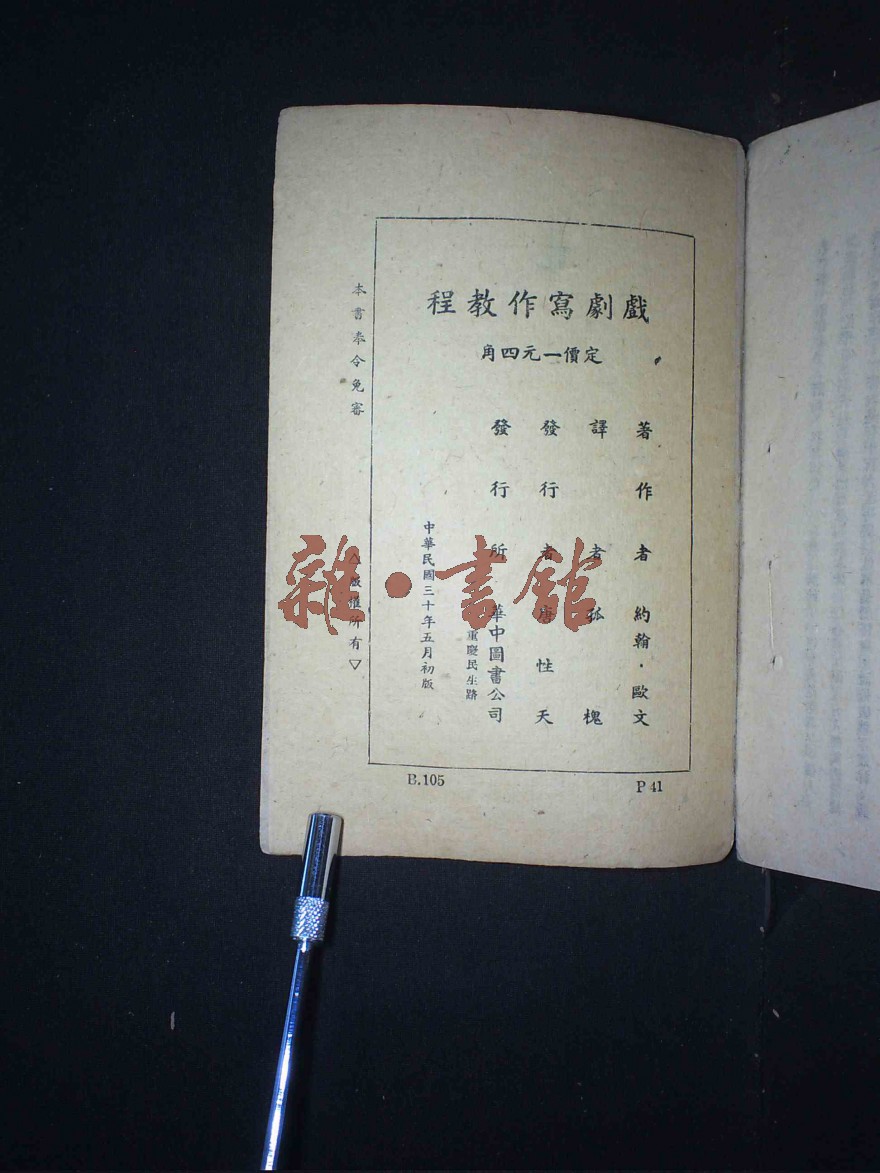 戲劇寫作教程
定價一元四角
著作者 約翰·歐文
譯者 孤槐
發行者 唐性天
發行所 華中圖書公司
重慶民生路
中華民國三十年五月初版
本書奉令免審
△版權所有▽
B.105
P 41
雜·書館